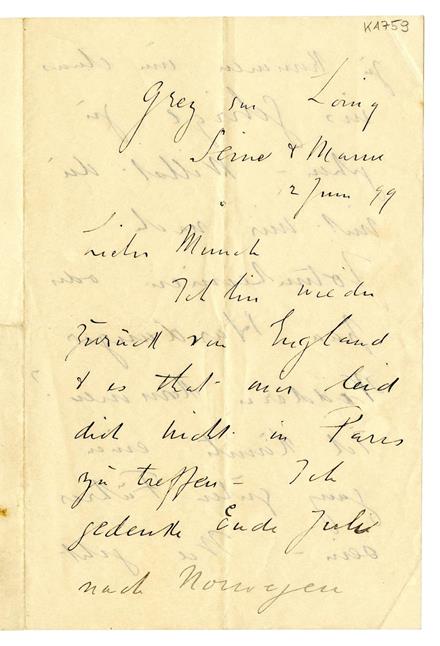 K1759
Grez sur Loing
Seine & Marne
2 Juni 99
Lieber Munch
Ich bin wieder
zurück von England
& es that mir leid
dich nicht in Paris
zu treffen – Ich
gedenke Ende Juli
nach Norwegen